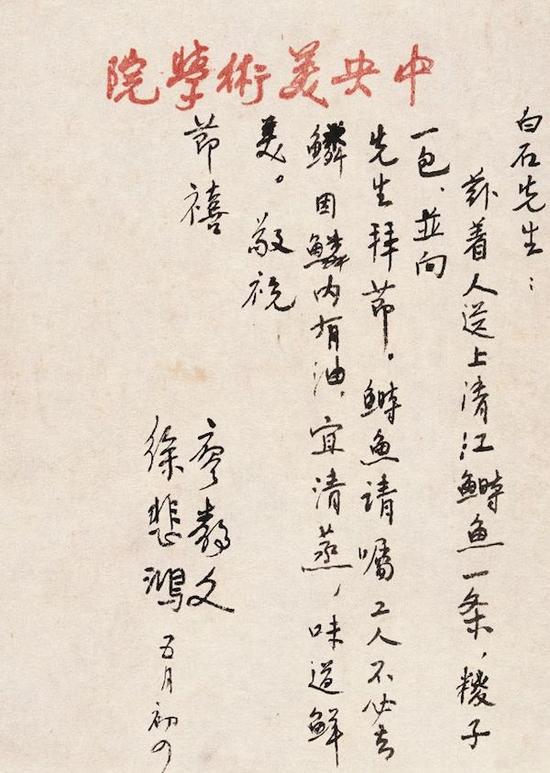 中央美術學院
白石先生：
兹着人送上清江鰣魚一条，糉子
一包、並向
先生拜節。鰣魚請嘱工人不必去
鱗因鱗内有油，宜清蒸，味道鮮
美。敬祝
節禧
廖静文
徐悲鴻 五月初四